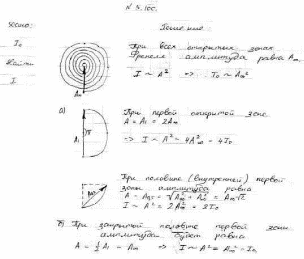 N 5.100.
Дано:
Решение
I₀
Найти
I
При всех открытых зонах
Френеля амплитуда равна A∞
I ~ A² => I₀ ~ A∞²
A∞
а)
При первой открытой зоне
A = A₁ = 2A∞
=> I ~ A² = 4A∞² ~ 4I₀
A₁
π
При половине (внутренней) первой
зоны амплитуда равна
A = A₀₅ = √A∞² + A∞² = A∞√2
I ~ A² = 2A∞² = 2I₀
б) При закрытой половине первой зоны
амплитуда будет равна
A = ½A₁ = A∞ => I ~ A² = A∞² ~ I₀